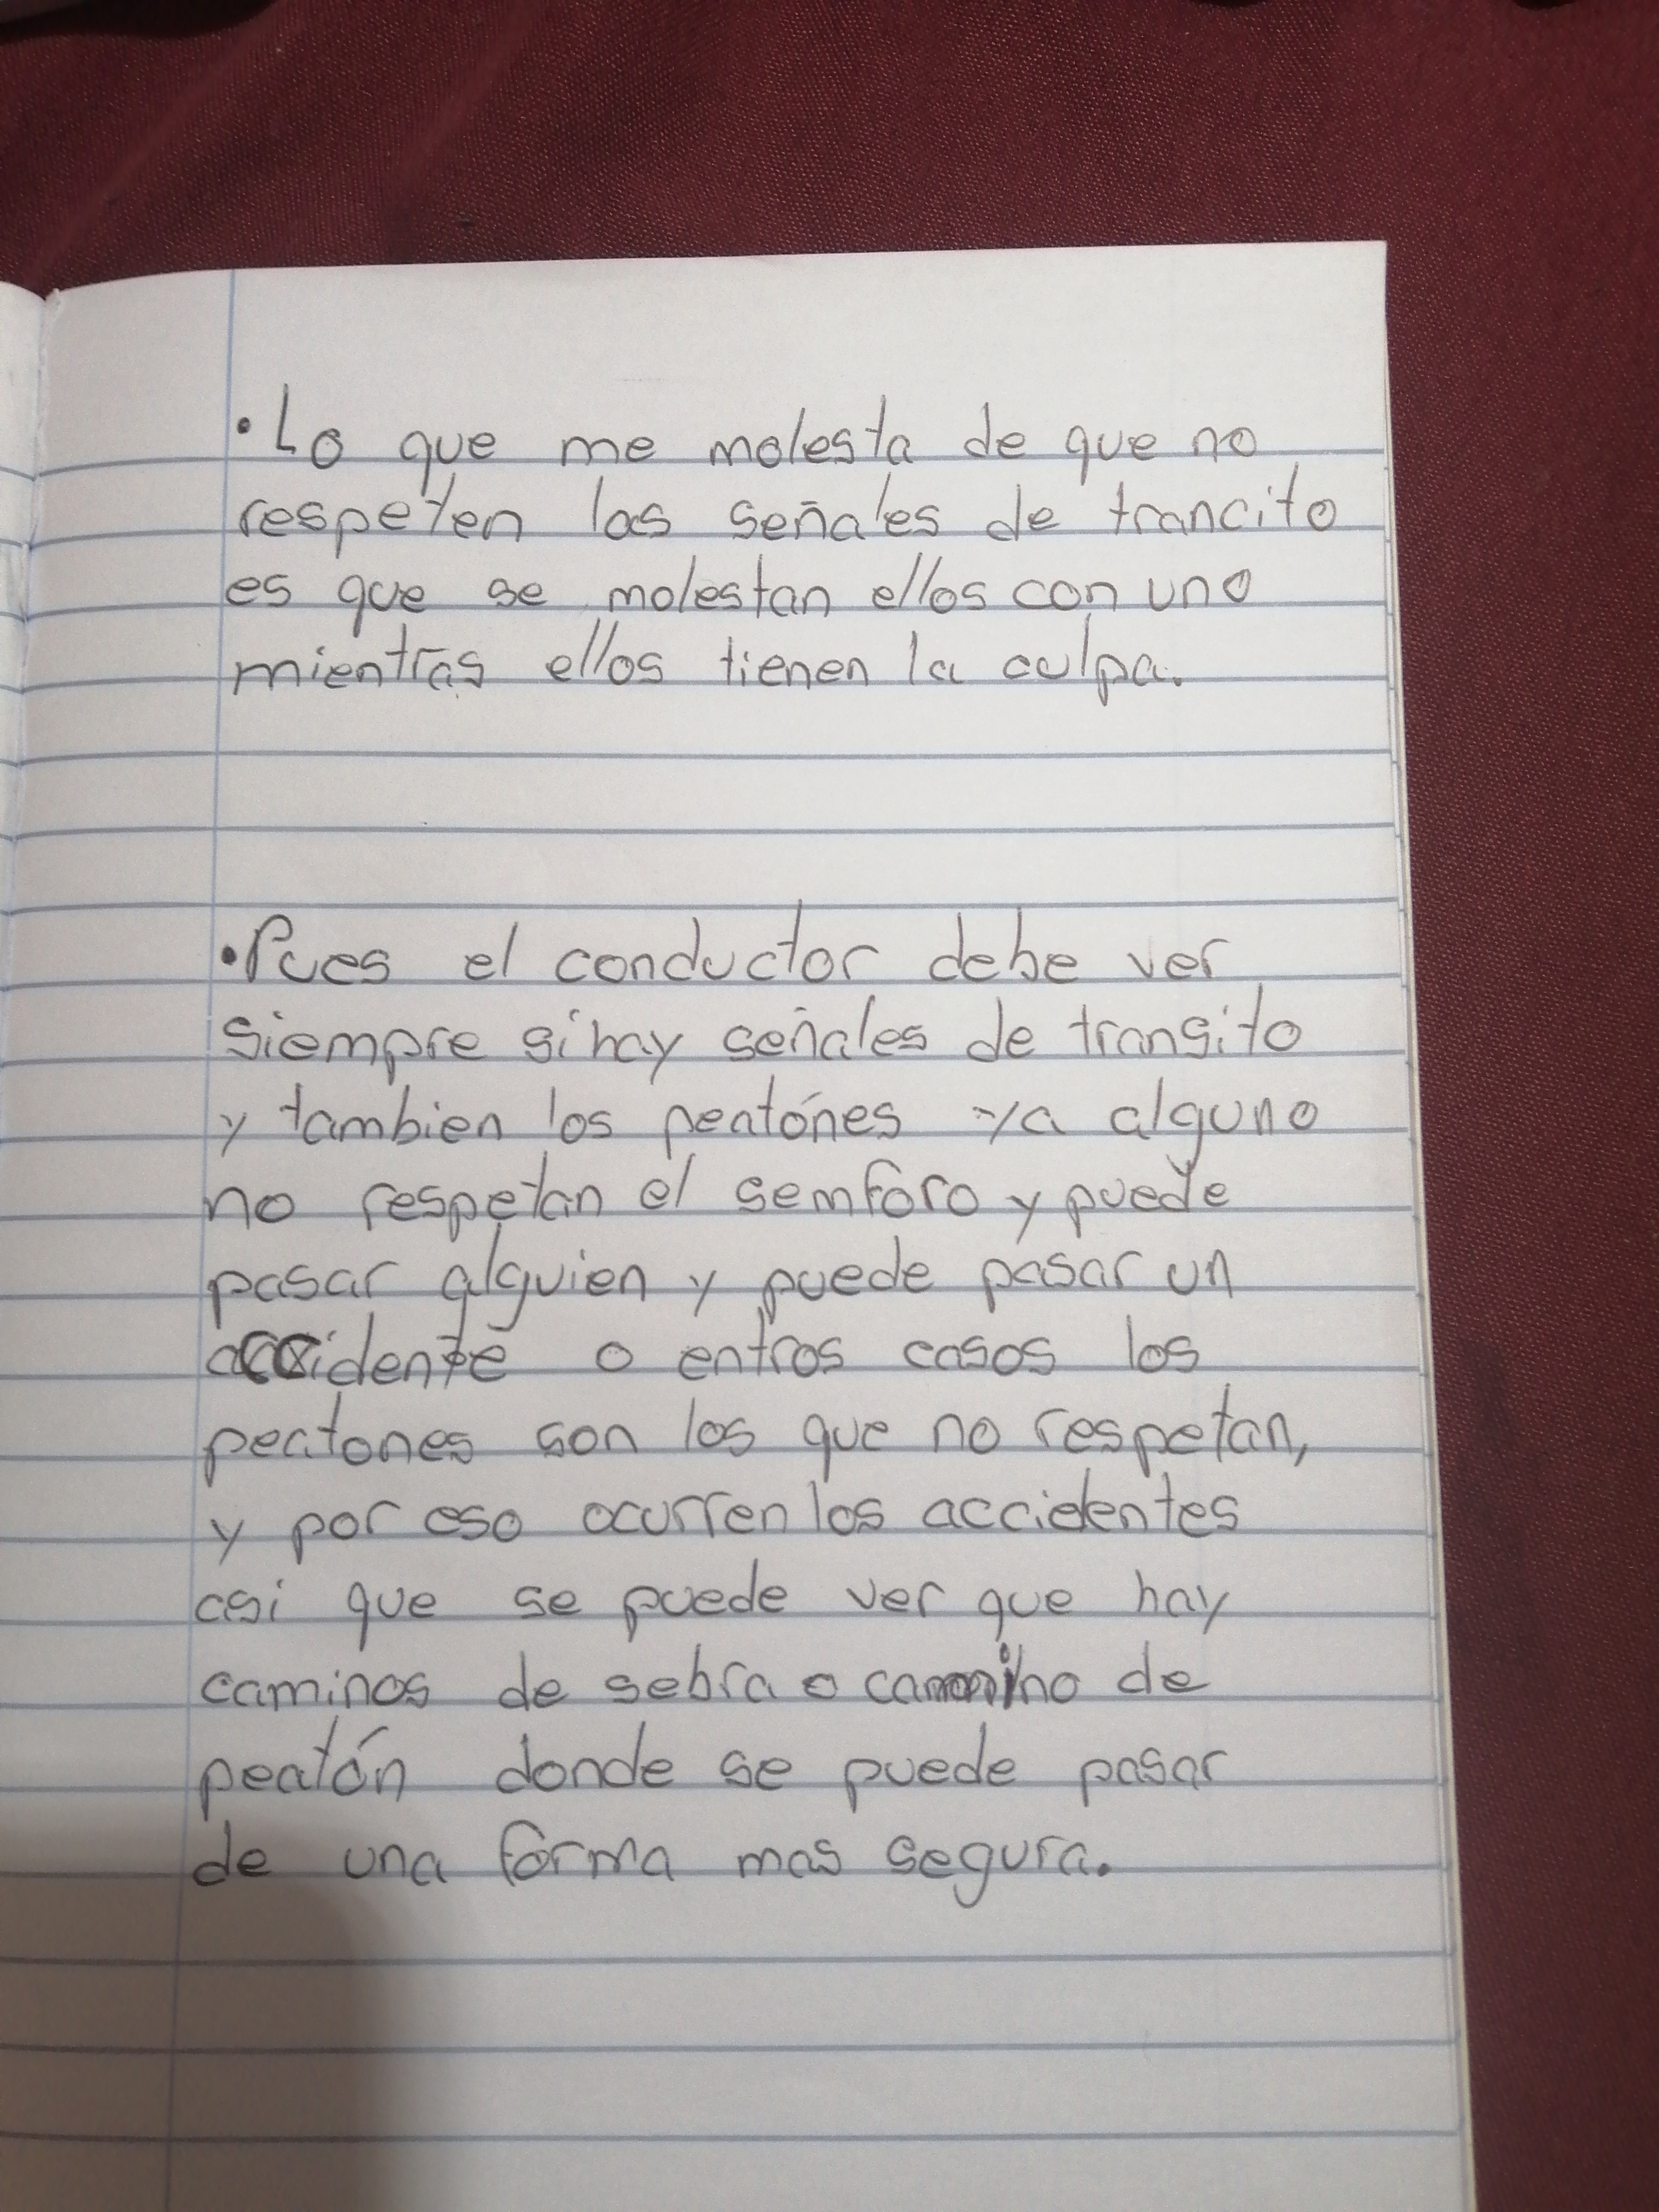 • Lo que me molesta de que no
respeten las señales de trancito
es que se molestan ellos con uno
mientras ellos tienen la culpa.
• Pues el conductor debe ver
siempre si hay señales de transito
y tambien los peatónes ya alguno
no respetan el semforo y puede
pasar alguien y puede pasar un
accidente o entros casos los
peatones son los que no respetan,
y por eso ocurren los accidentes
asi que se puede ver que hay
caminos de sebra o camino de
peatón donde se puede pasar
de una forma mas segura.